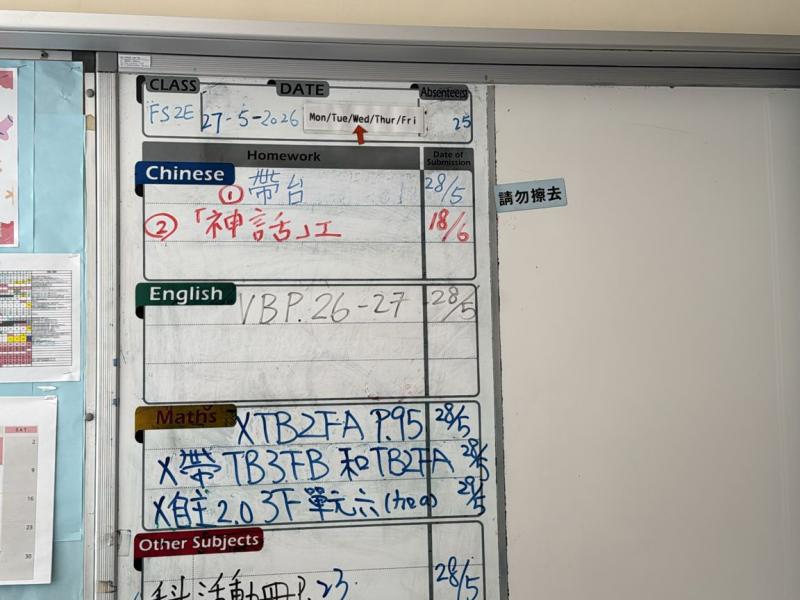 CLASS DATE Absentee(s)
FS2E 27-5-2026 Mon/Tue/Wed/Thur/Fri 25
Homework Date of Submission
Chinese ① 帶台 28/5
② 「神話」工 18/6
請勿擦去
English VB P.26-27 28/5
Maths XTB2FA P.95 28/5
X帶TB3FB 和TB2FA 28/5
X自主2.0 3F單元六 28/5
Other Subjects
科活動冊P.23 28/5
SAT
2
9
16
23
30